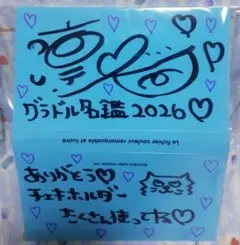 グラドル名鑑2026♡
Le fichier couleur remarquable et lustré
ありがとう♡
チェキホルダー
たくさん使ってね♡